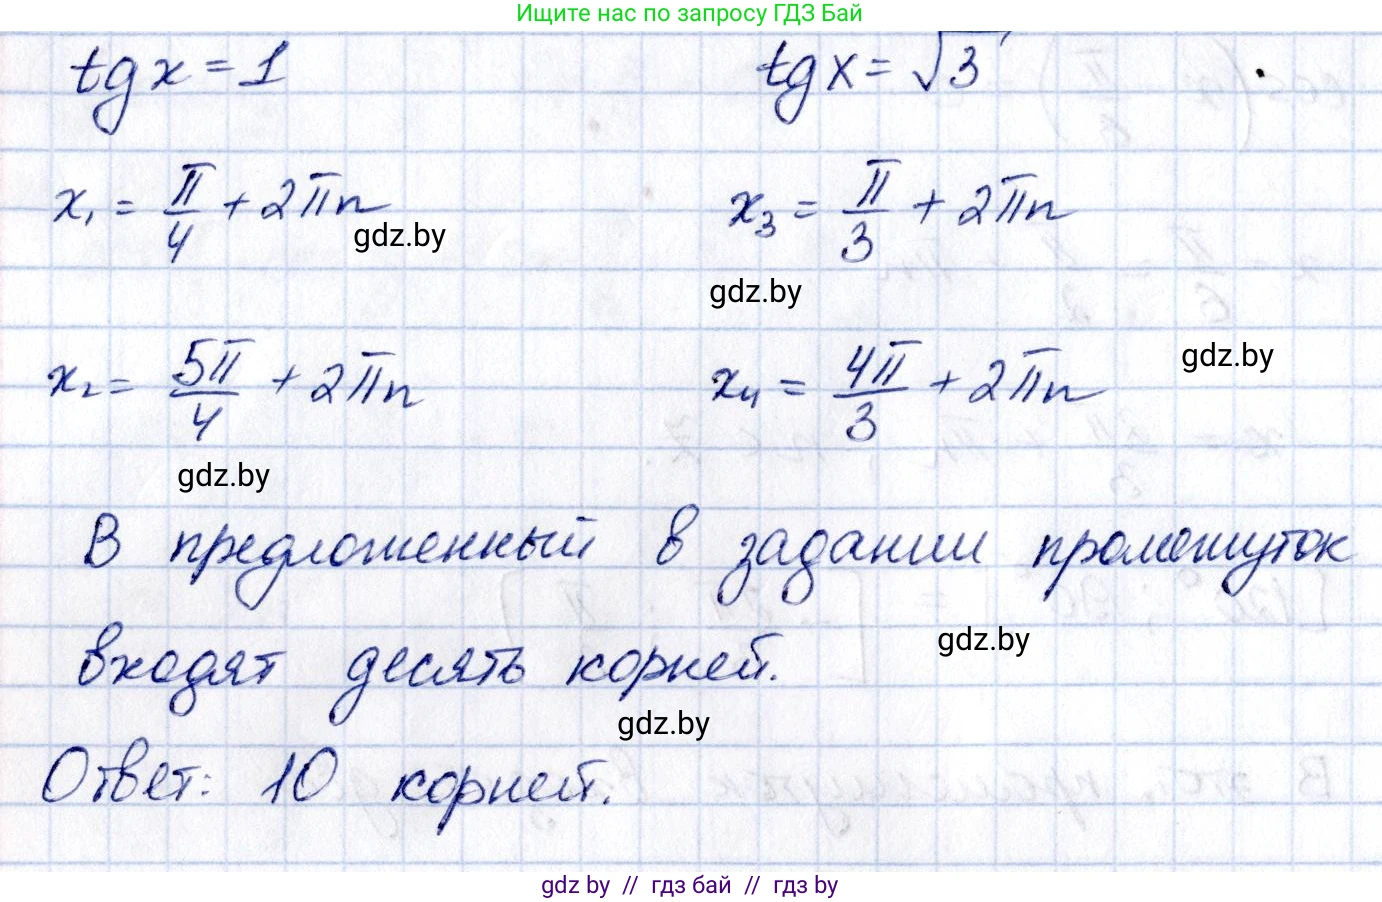 Ищите нас по запросу ГДЗ Бай
tg x = 1
tg x = √3
x₁ = π/4 + 2πn
x₃ = π/3 + 2πn
gdz.by
gdz.by
x₂ = 5π/4 + 2πn
x₄ = 4π/3 + 2πn
gdz.by
gdz.by
В предложенный в задании промежуток
входят десять корней.
gdz.by
gdz.by
Ответ: 10 корней.
gdz by // гдз бай // гдз by